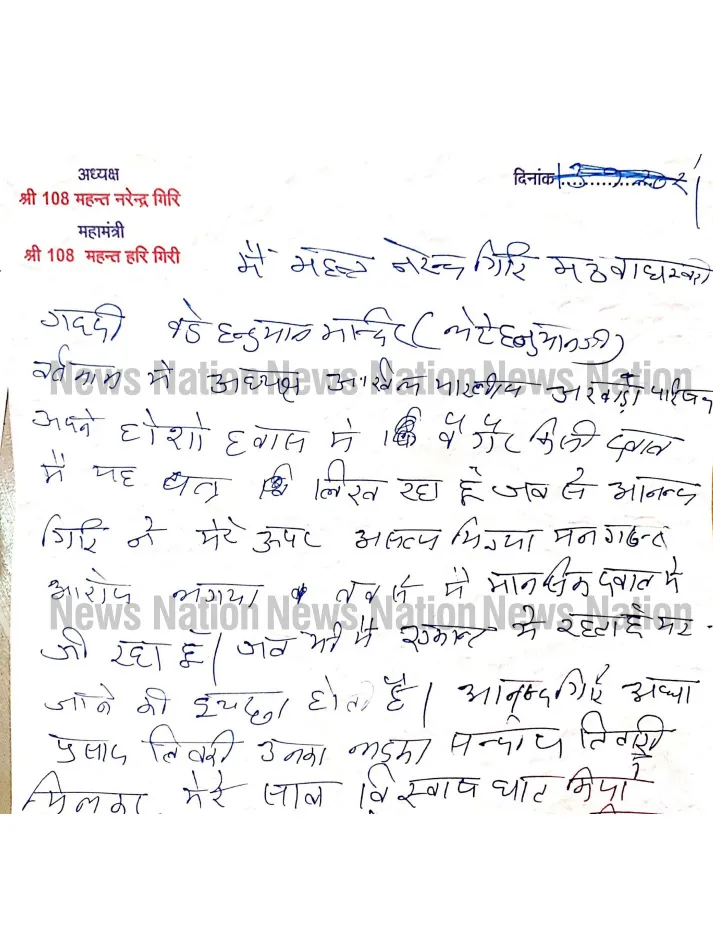 अध्यक्ष
श्री 108 महन्त नरेन्द्र गिरि
महामंत्री
श्री 108 महन्त हरि गिरी
दिनांक
मैं महन्त नरेन्द्र गिरि मठ बाघम्बरी
गद्दी बडे हनुमान मन्दिर ( लेटे हनुमानजी )
वर्तमान में अध्यक्ष अखिल भारतीय अखाड़ा परिषद
अपने होशो हवास में बगैर किसी दबाव
में यह पत्र लिख रहा हूँ जब से आनन्द
गिरि ने मेरे ऊपर असत्य मिथ्या मनगढन्त
आरोप लगाया तब से मैं मानसिक दबाव में
जी रहा हूँ। जब भी मैं एकान्त में रहता हूँ मर
जाने की इच्छा होती है। आनन्द गिरि अद्या
प्रसाद तिवारी उनका लड़का सन्दीप तिवारी
मिलकर मेरे साथ विश्वासघात किया
News Nation News Nation News Nation
News Nation News Nation News Nation